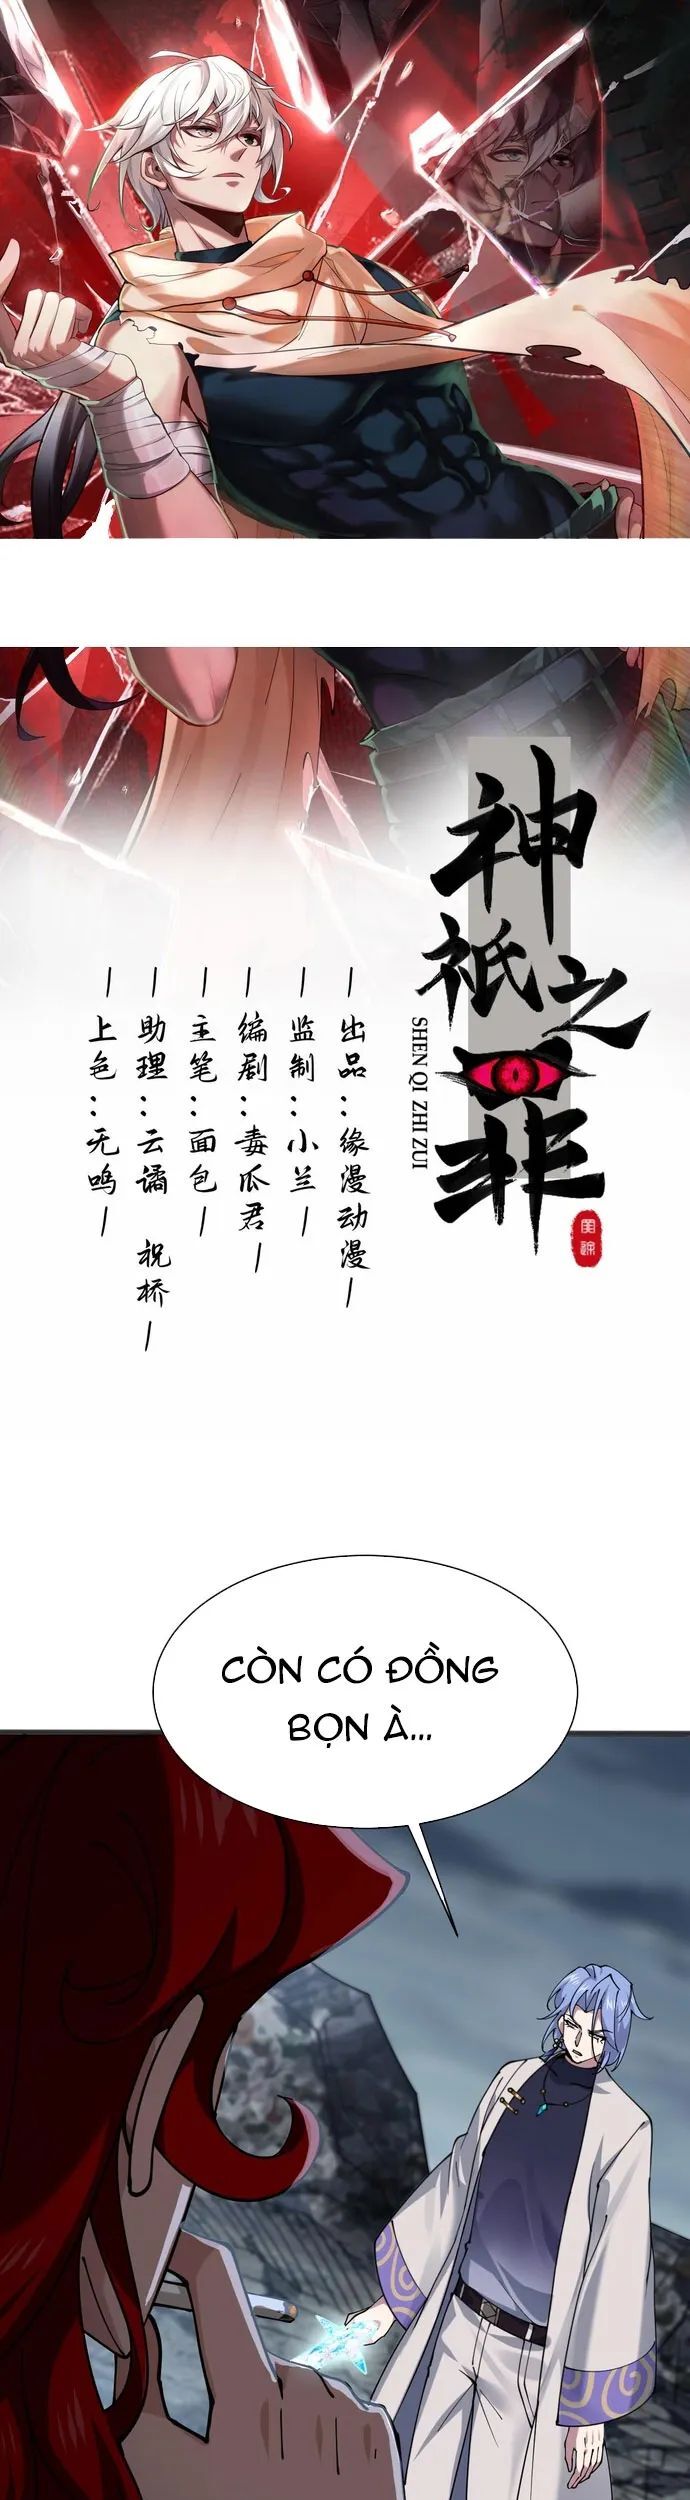 神祇之罪
SHEN QI ZHI ZUI
—出品：缘漫动漫—
—监制：小兰—
—编剧：毒瓜君—
—主笔：面包—
—助理：云谲 祝桥—
—上色：无鸣—
CÒN CÓ ĐỒNG
BỌN À...